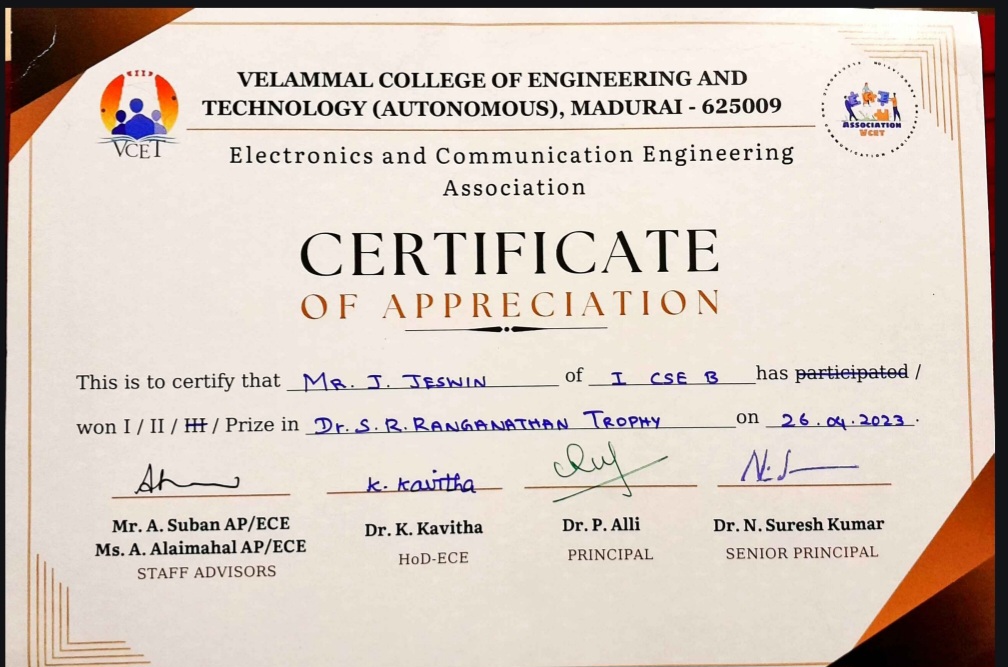 VELAMMAL COLLEGE OF ENGINEERING AND
TECHNOLOGY (AUTONOMOUS), MADURAI - 625009
VCET
ASSOCIATION
VCET
Electronics and Communication Engineering
Association
CERTIFICATE
OF APPRECIATION
This is to certify that MR. J. JESWIN of I CSE B has participated /
won I / II / III / Prize in Dr. S. R. RANGANATHAN TROPHY on 26.04.2023.
K. Kavitha
Mr. A. Suban AP/ECE
Ms. A. Alaimahal AP/ECE
STAFF ADVISORS
Dr. K. Kavitha
HoD-ECE
Dr. P. Alli
PRINCIPAL
Dr. N. Suresh Kumar
SENIOR PRINCIPAL